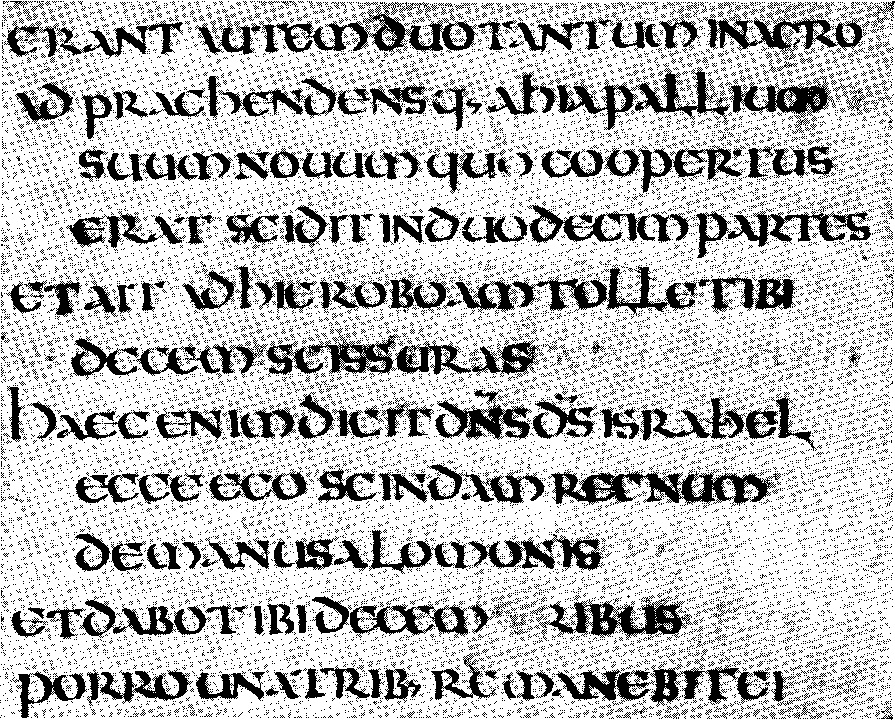 ERANT AUTEM DUO TANTUM IN AGRO
ADPRAEHENDENSQ, AHIA PALLIUM
SUUM NOUUM QUO COOPERTUS
ERAT SCIDIT IN DUODECIM PARTES
ET AIT AD HIEROBOAM TOLLE TIBI
DECEM SCISSURAS
HAEC ENIM DICIT DN̄S D̄S ISRAHEL
ECCE EGO SCINDAM REGNUM
DE MANU SALOMONIS
ET DABO TIBI DECEM RIBUS
PORRO UNA TRIB, REMANEBIT EI